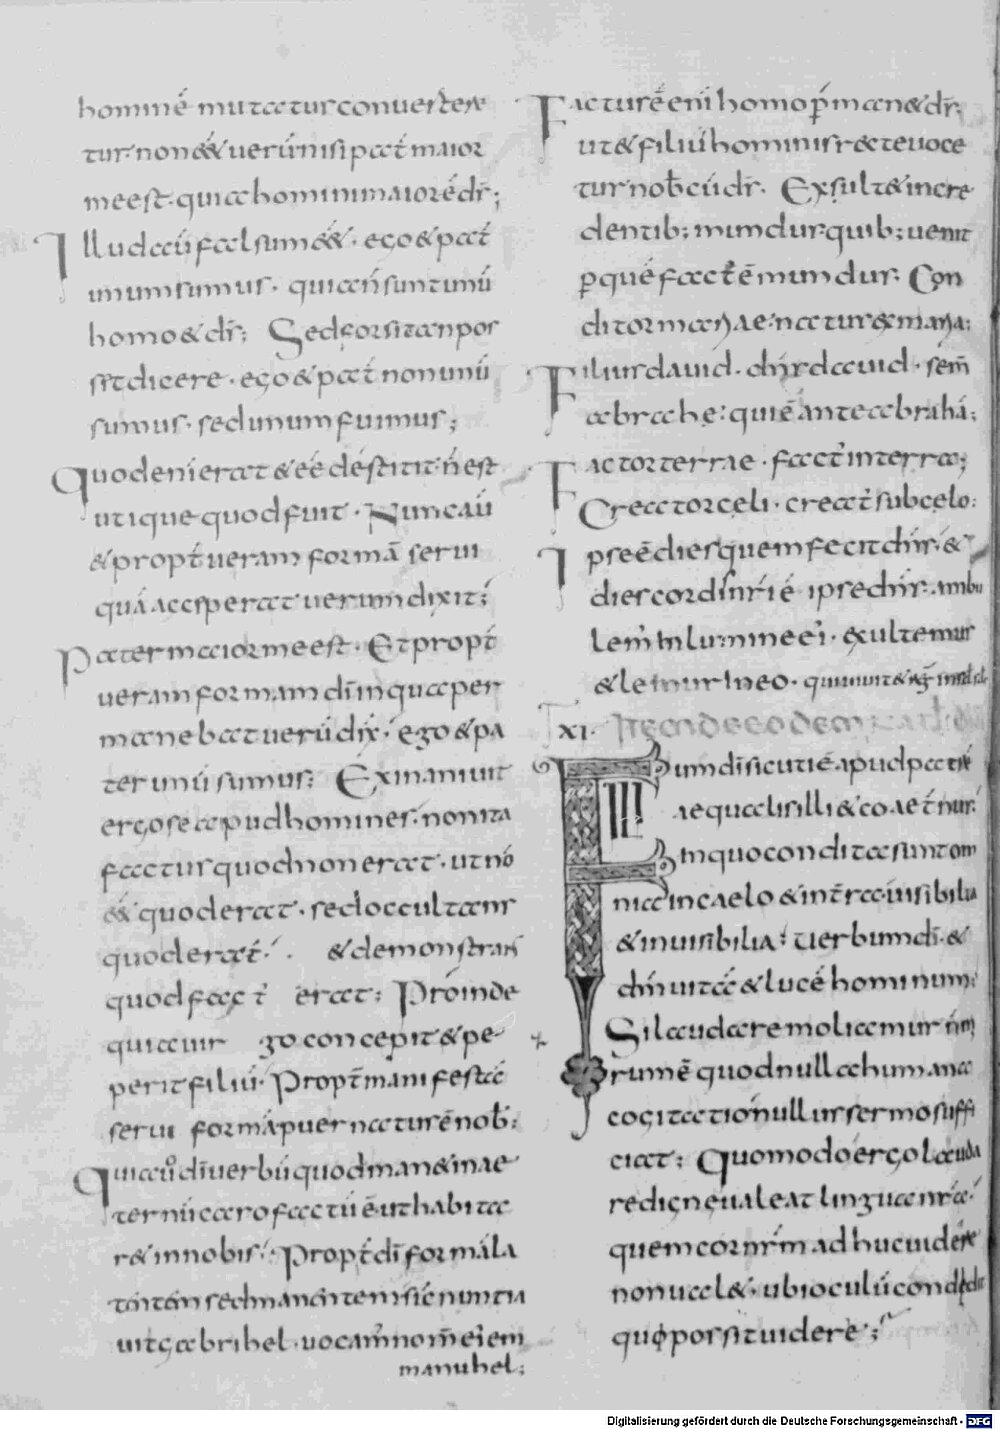 hominē mutatur conuertere
tur non eēt uerū nisi pat̄ maior
me est. qui a homini maiorē ds̄;
Illud aū falsum eēt. ego & pat̄
unum sumus. quia n̄ sunt unū
homo & ds̄; Sed forsitan pos
s&dicere. ego & pat̄ non unū
sumus. sed unum fuimus;
Quod enī erat & eē destitit n̄ est
utique quod fuit. Nunc aū
& propt̄ ueram formā serui
quā acciperat uerum dixit;
Pater maior me est. Et propt̄
ueram formam dī in qua per
manebat uerū dix̄. ego & pa
ter unū sumus; Exinaniuit
ergo se apud homines. non ita
factus quod non erat. ut nō
eēt quod erat. sed occultans
quod erat. & demonstrans
quod fact̄ erat; Proinde
quia uir go concepit & pe
perit filiū. Propt̄ manifestā
serui formā puer natus ē nob̄;
Quia uō dī uerbū quod man& in ae
ternū caro factū ē ut habita
r& in nobis. Propt̄ dī formā la
tentem sed manentem sic̄ nuntia
uit gabrihel. uocam̄ nom̄ ei' em
manuhel;
Factus ē enī homo p̄man& ds̄;
ut & filius hominis recte uoce
tur nob̄cū ds̄. Exsult& incre
dentib; mundus quib; uenit
p quē fact' ē mundus. Con
ditor mariae. natus ex maria;
Filius dauid. dn̄s dauid. sem̄
abrahę. qui ē ante abrahā;
Factor terrae. fact' in terra;
Creator cęli. creat' sub cęlo;
Ipse ē dies quem fecit dn̄s. &
dies cordis nr̄i ē ipse dn̄s. ambu
lem' in lumine ei'. exultemus
& lętemur in eo. qui uiuit & reg̅
XI. Item de eodem
Filium dī sicuti ē apud patrē
aequalis illi & coaet̄nus.
In quo condita sunt om
nia in caelo & in t̄ra. uisibilia
& inuisibilia. uerbum dī. &
dm̄ uitā & lucē hominum;
Si laudare molimur n̄ mi
rum ē quod nulla humana
cogitatio nullus sermo suffi
ciat; Quomodo ergo lauda
re dignę ualeat lingua nr̄a.
quem cor nr̄m adhuc uidere
non ual&. ubi oculū condidit
quo possit uidere;
Digitalisierung gefördert durch die Deutsche Forschungsgemeinschaft - DFG